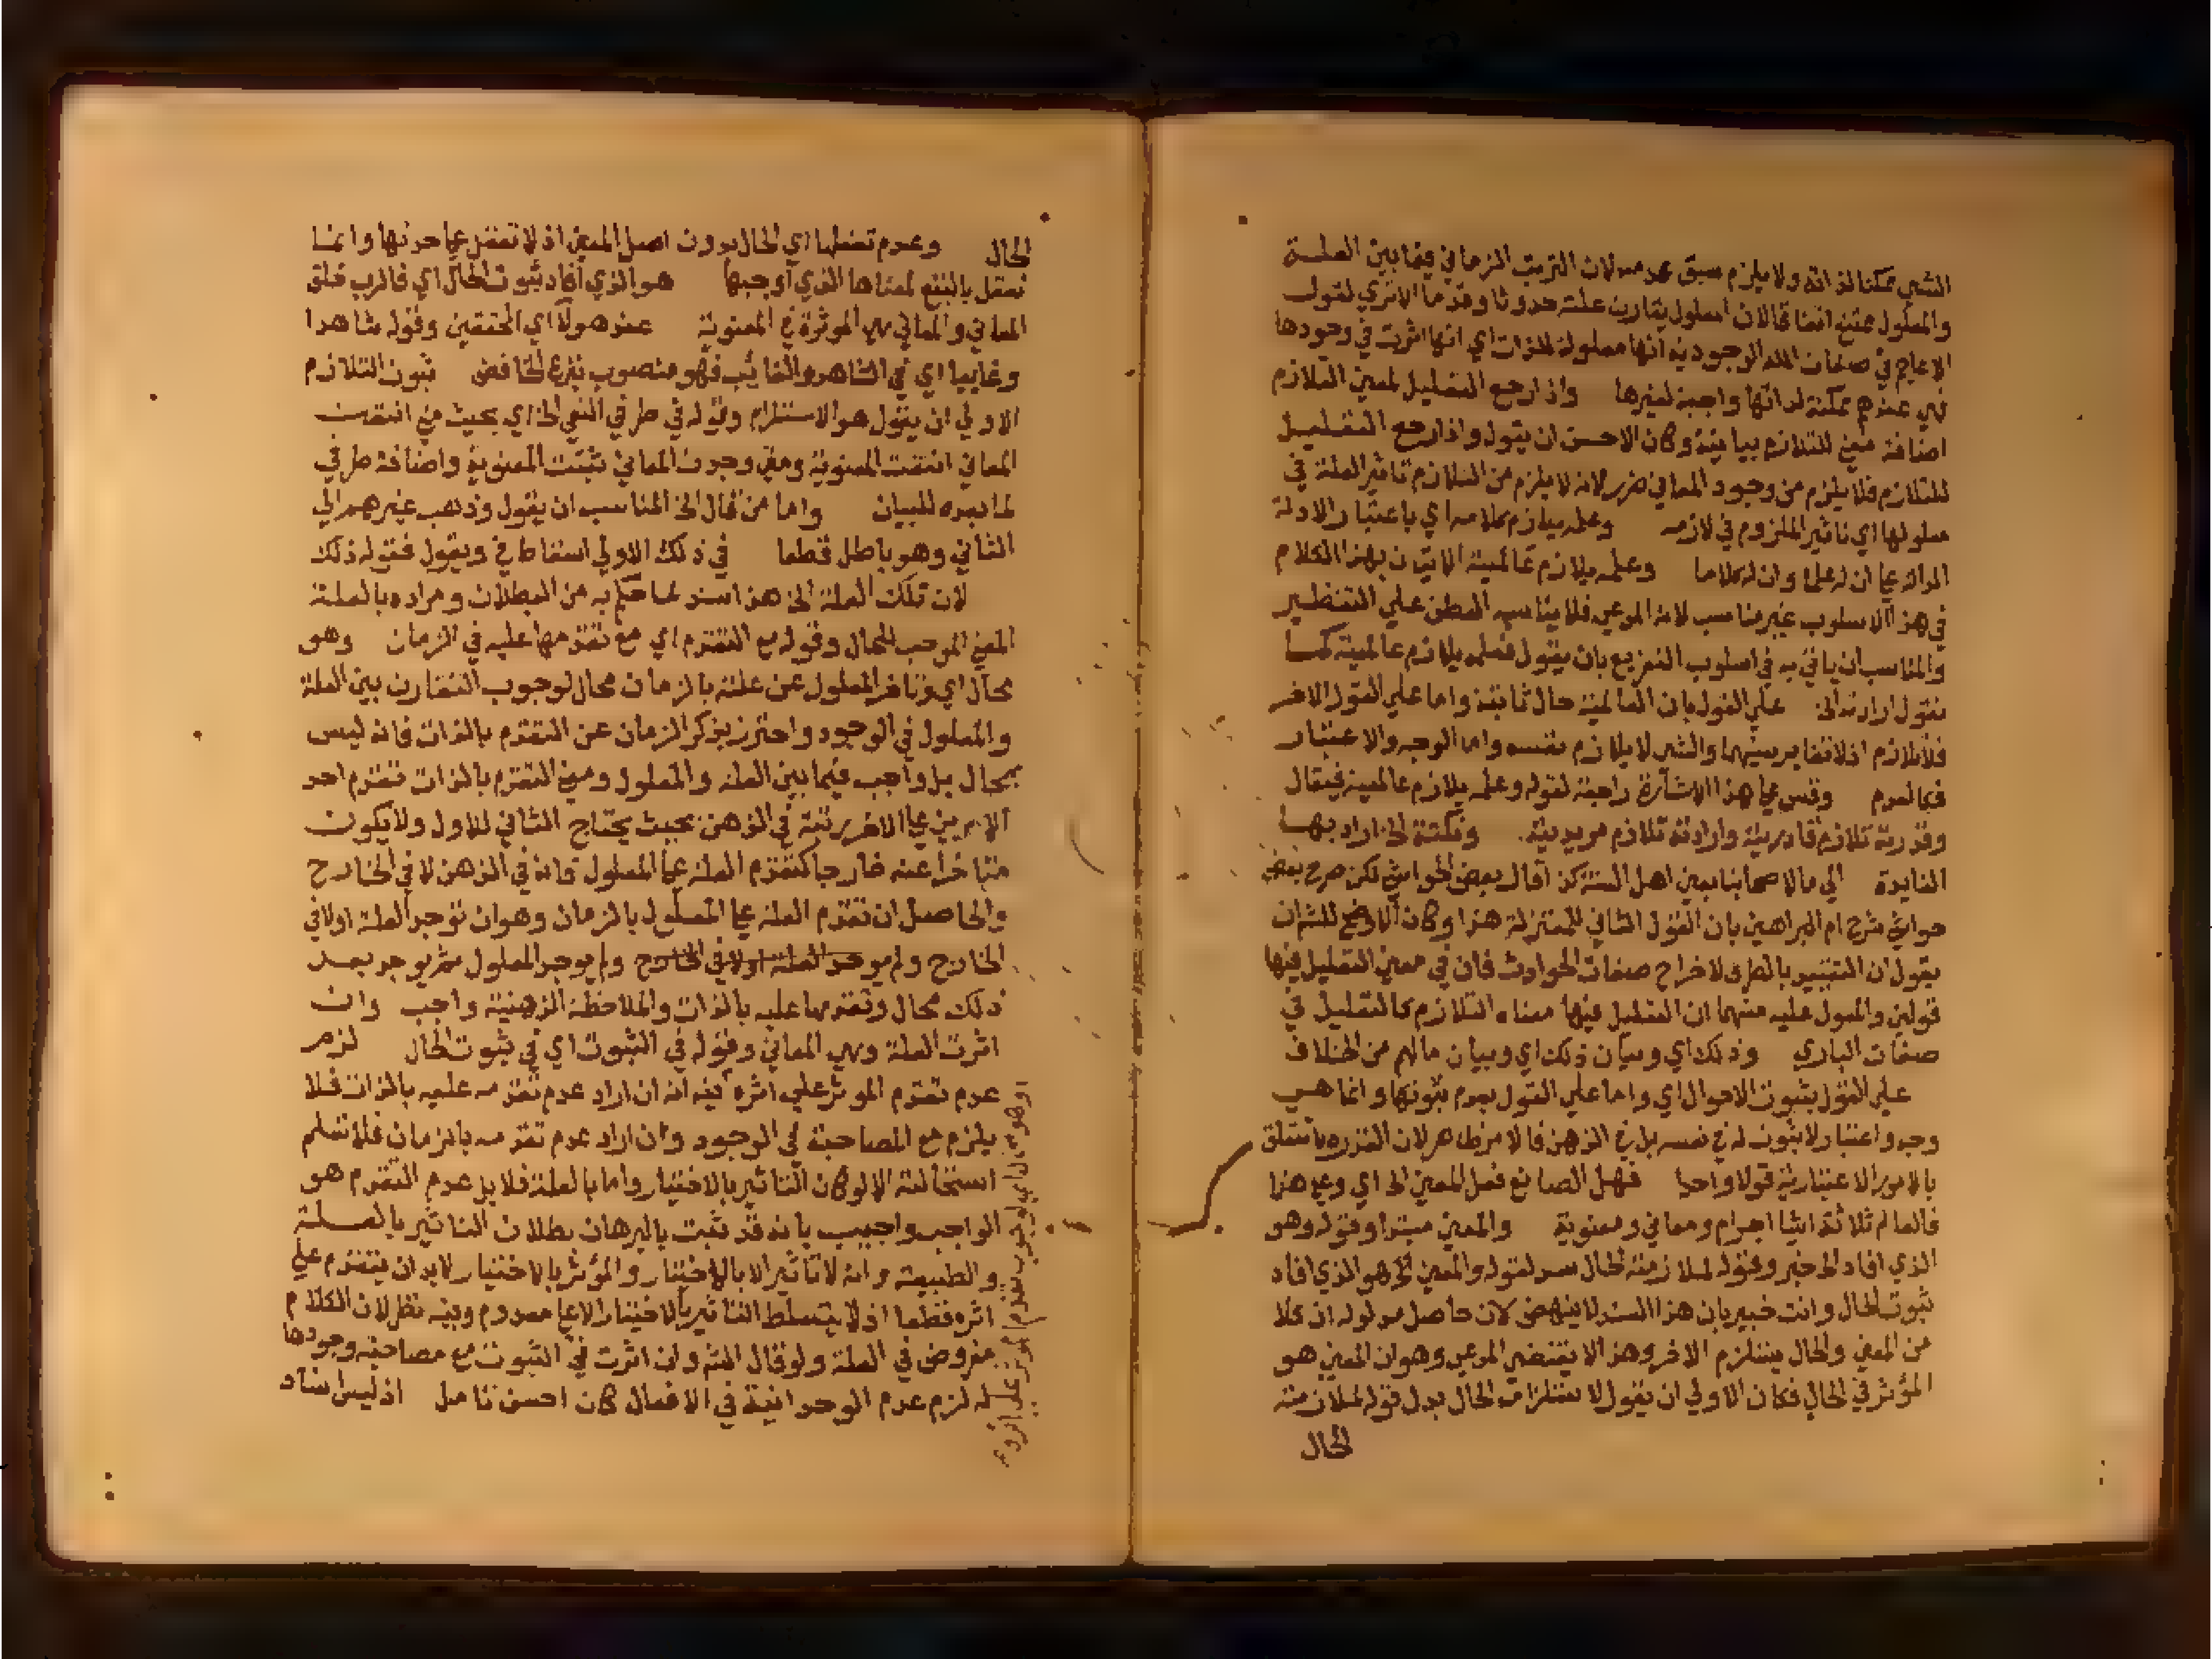 الشي ممكنا لذاته ولا يلزم سبق عدمه لان الترتب الزماني فيما بين العلة
والمعلول ممتنع اتفاقا لان المعلول يقارن علته حدوثا وقدما الا تري لقول
الاعاجم في صفات الله الوجودية انها معلولة للذات اي انها اثرت في وجودها
فهي عندهم ممكنة لذاتها واجبة لغيرها واذا رجع التعليل لمعني التلازم
اضافة معني للتلازم بيانية وكان الاحسن ان يقول واذا رجع التعليل
للتلازم فلا يلزم من وجود المعاني ضرر لانه لا يلزم من التلازم تاثير العلة في
معلولها اي تاثير الملزوم في لازمه وعلمه يلازم كلامه اي باعتبار الادلة
الدالة علي ان له علما وان له كلاما وعلمه يلازم عالميته الاتيان بهذا الكلام
في هذا الاسلوب غير مناسب لانه المدعي فلا يناسبه العطف علي التنظير
والمناسب ان ياتي به في اسلوب التفريع بان يقول فعلمه يلازم عالميته كما
نقول ارادته الخ علي القول بان العالمية حال ثابتة واما علي القول الاخر
فلا تلازم اذ لا تغاير بينهما والشي لا يلازم نفسه واما الوجه والاعتبار
فكالعدم وقس علي هذا الاشارة راجعة لقوله وعلمه يلازم عالميته فيقال
وقدرته تلازم قادريته وارادته تلازم مريديته. ونكتة الخ اراد بها
الفايدة الي ما لاصحابنا يعني اهل السنة كذا قال بعض الحواشي لكن صرح بعض
حواشي شرح ام البراهين بان القول الثاني للمعتزلة هذا وكان الاوضح للشان
يقول ان التقييد بالطرف لاخراج صفات الحوادث فان في معني التعليل فيها
قولين والمعول عليه منهما ان التعليل فيها معناه التلازم كالتعليل في
صفات الباري وذلك اي وبيان ذلك اي وبيان مالهم من الخلاف
علي القول بثبوت الاحوال اي واما علي القول بعدم ثبوتها وانما هي
وجه واعتبار لا ثبوت له في نفسه بل في الذهن فالامر ظاهر لان القدرة لا تتعلق
بالامور الاعتبارية قولا واحدا فهل الصانع فعل المعني الخ اي وعلي هذا
فالعالم ثلاثة اشيا اجرام ومعاني ومعنوية والمعني مبتدا وقوله وهو
الذي افاد الخ خبر وقوله لملازمته الحال سند لقوله والمعني الخ هو الذي افاد
ثبوت الحال وانت خبير بان هذا السند لا ينهض لان حاصل مدلوله ان كلا
من المعني والحال يستلزم الاخر وهذا لا يقتضي المدعي وهو ان المعني هو
المؤثر في الحال فكان الاولي ان يقول لاستلزامه الحال بدل قوله لملازمته
الحال
الحال وعدم تعقلها اي الحال بدون اصل المعني اذ لا تعقل علي حدتها وانما
تعقل بالتبع لمعناها الذي اوجبها هو الذي افاد ثبوت الحال اي فالرب خلق
المعاني والمعاني هي الموثرة في المعنوية عند هولا اي المحققين وقوله شاهدا
وغايبا اي في الشاهد والغايب فهو منصوب بنزع الخافض ثبوت التلازم
الاولي ان يقول هو الاستلزام وقوله في طرفي النفي الخ اي بحيث متي انتفت
المعاني انتفت المعنوية ومتي وجدت المعاني ثبتت المعنوية واضافة طرفي
لما بعده للبيان واما من قال الخ المناسب ان يقول وذهب غيرهم الي
الثاني وهو باطل قطعا في ذلك الاولي اسقاط في ويقول فقوله ذلك
لان تلك العلة الخ هذا سند لما حكم به من البطلان ومراده بالعلة
المعني الموجب للحال وقوله مع التقدم اي مع تقدمها عليه في الزمان وهو
محال اي وتاخر المعلول عن علته بالزمان محال لوجوب التقارن بين العلة
والمعلول في الوجود واحترز بذكر الزمان عن التقدم بالذات فانه ليس
بمحال بل واجب فيما بين العلة والمعلول ومعني التقدم بالذات تقدم احد
الامرين علي الاخر رتبة في الذهن بحيث يحتاج الثاني للاول ولا يكون
متاخرا عنه خارجا كتقدم العلة علي المعلول فانه في الذهن لا في الخارج
والحاصل ان تقدم العلة علي المعلول بالزمان وهو ان توجد العلة اولا في
الخارج ولم يوجد العلة اولا في الخارج ولم يوجد المعلول ثم يوجد بعد
ذلك محال وتقدمها عليه بالذات والملاحظة الذهنية واجب وان
اثرت العلة وهي المعاني وقوله في الثبوت اي في ثبوت الحال لزم
عدم تقدم الموثر علي اثره فيه انه ان اراد عدم تقدمه عليه بالذات فلا
يلزم مع المصاحبة في الوجود وان اراد عدم تقدمه بالزمان فلا نسلم
استحالته الا لو كان التاثير بالاختيار واما بالعلة فلا بل عدم التقدم هو
الواجب واجيب بانه قد ثبت بالبرهان بطلان التاثير بالعلة
والطبيعة وانه لا تاثير الا بالاختيار والمؤثر بالاختيار لابد ان يتقدم علي
اثره قطعا اذ لا يتسلط التاثير بالاختيار الا علي معدوم وفيه نظر لان الكلام
مفروض في العلة ولو قال الشه وان اثرت في الثبوت مع مصاحبته وجودها
له لزم عدم الوحدانية في الافعال كان احسن تامل اذ ليس اسناد